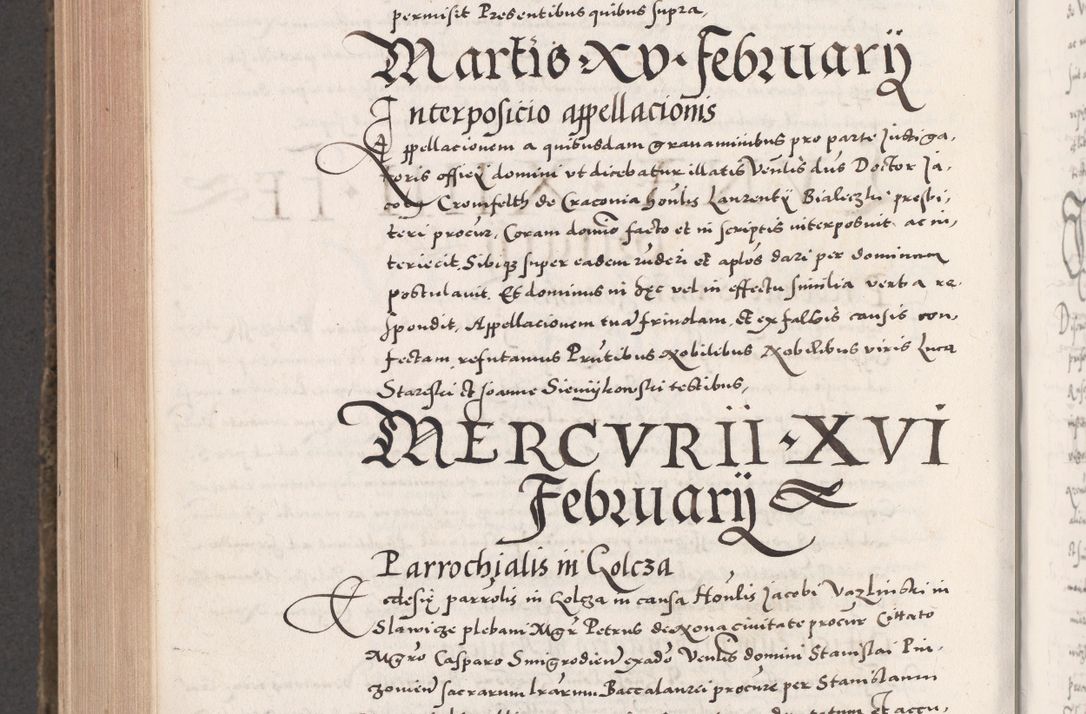 permisit Presentibus quibus supra,
Martis · XV · Februarij
Interposicio appellacionis
Appellacionem a quibusdam gravaminibus pro parte Instiga,
toris officij domini ut dicebatur illatis Venlis dns Doctor Ja,
cobg Cromfelth de Cracovia honlis Laurentij Bialeczki presbi,
teri procur, Coram domino facto et in scriptis interposuit ac in,
teriecit, Sibiqz super eadem ruderi et aplos dari per dominum
postulavit. Et dominus in hęc vel in effectu similia verba re,
spondit, Appellacionem tuã frivolam, et ex falsis causis con,
fectam, refutamus Prutibus Nobilibus viris Luca
Starsski et Joanne Siemykowski testibus,
MERCVRII · XVI
Februarij
Parrochialis in Golcza
Ecclesię parrolis in Golcza in causa Honlis Jacobi Vozlinski in
Slawicze plebani Mgr Petrus de Nona civitate procur Cittato
Mgro Casparo Snugrodien exado Venlis domini Stanislai Pin,
czovien sacrarum lrarum Baccalaurei procure per Stanislaum